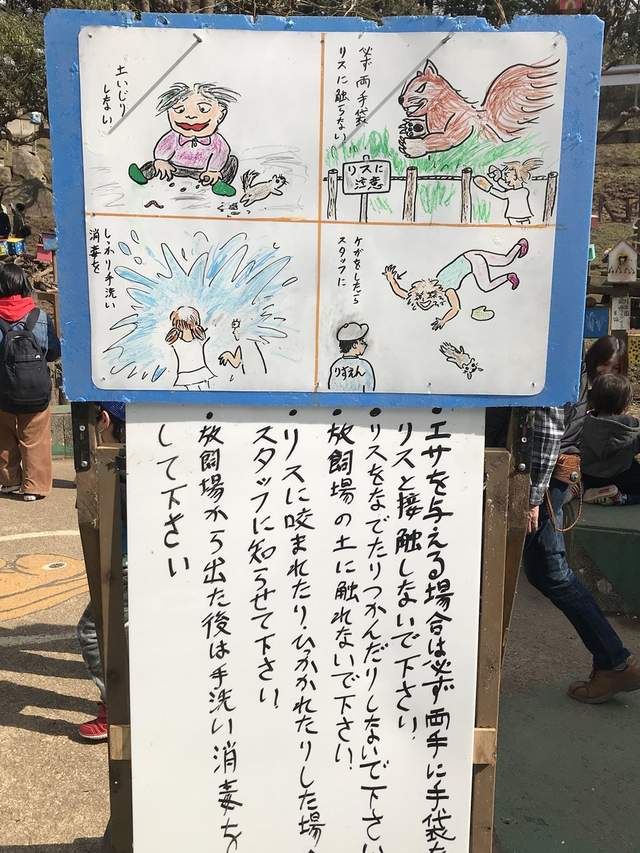 必ず両手袋
リスに触らない
リスに
注意
土いじり
しない
ケガをしたら
スタッフに
りすえん
しっかり手洗い
消毒を
・エサを与える場合は必ず両手に手袋を
リスと接触しないで下さい.
・リスをなでたりつかんだりしないで下さい
・放飼場の土に触れないで下さい.
・リスに咬まれたり、ひっかかれたりした場合
スタッフに知らせて下さい.
・放飼場から出た後は手洗い消毒を
して下さい